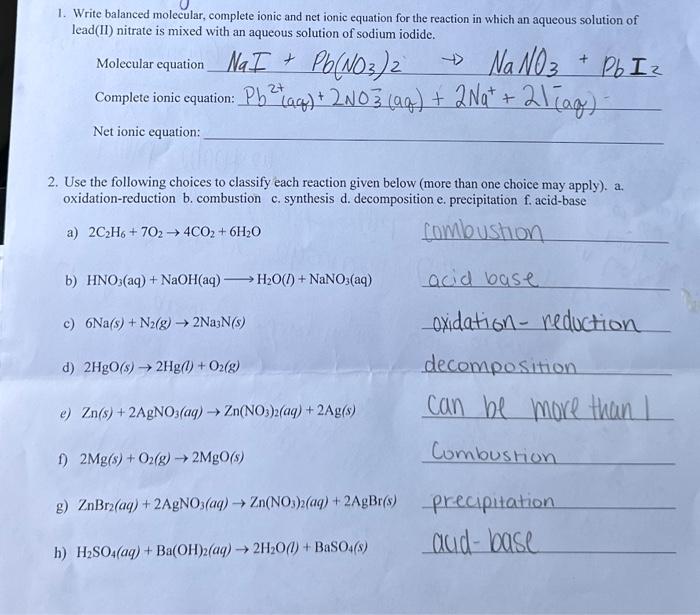 1. Write balanced molecular, complete ionic and net ionic equation for the reaction in which an aqueous solution of
lead(II) nitrate is mixed with an aqueous solution of sodium iodide.
Molecular equation NaI + Pb(NO3)2 → NaNO3 + PbI2
Complete ionic equation: Pb²⁺(aq) + 2NO₃⁻(aq) + 2Na⁺ + 2I⁻(aq) -
Net ionic equation:
2. Use the following choices to classify each reaction given below (more than one choice may apply). a.
oxidation-reduction b. combustion c. synthesis d. decomposition e. precipitation f. acid-base
a) 2C₂H₆ + 7O₂ → 4CO₂ + 6H₂O combustion
b) HNO₃(aq) + NaOH(aq) ⟶ H₂O(l) + NaNO₃(aq) acid base
c) 6Na(s) + N₂(g) → 2Na₃N(s) oxidation-reduction
d) 2HgO(s) → 2Hg(l) + O₂(g) decomposition
e) Zn(s) + 2AgNO₃(aq) → Zn(NO₃)₂(aq) + 2Ag(s) can be more than 1
f) 2Mg(s) + O₂(g) → 2MgO(s) Combustion
g) ZnBr₂(aq) + 2AgNO₃(aq) → Zn(NO₃)₂(aq) + 2AgBr(s) precipitation
h) H₂SO₄(aq) + Ba(OH)₂(aq) → 2H₂O(l) + BaSO₄(s) acid-base